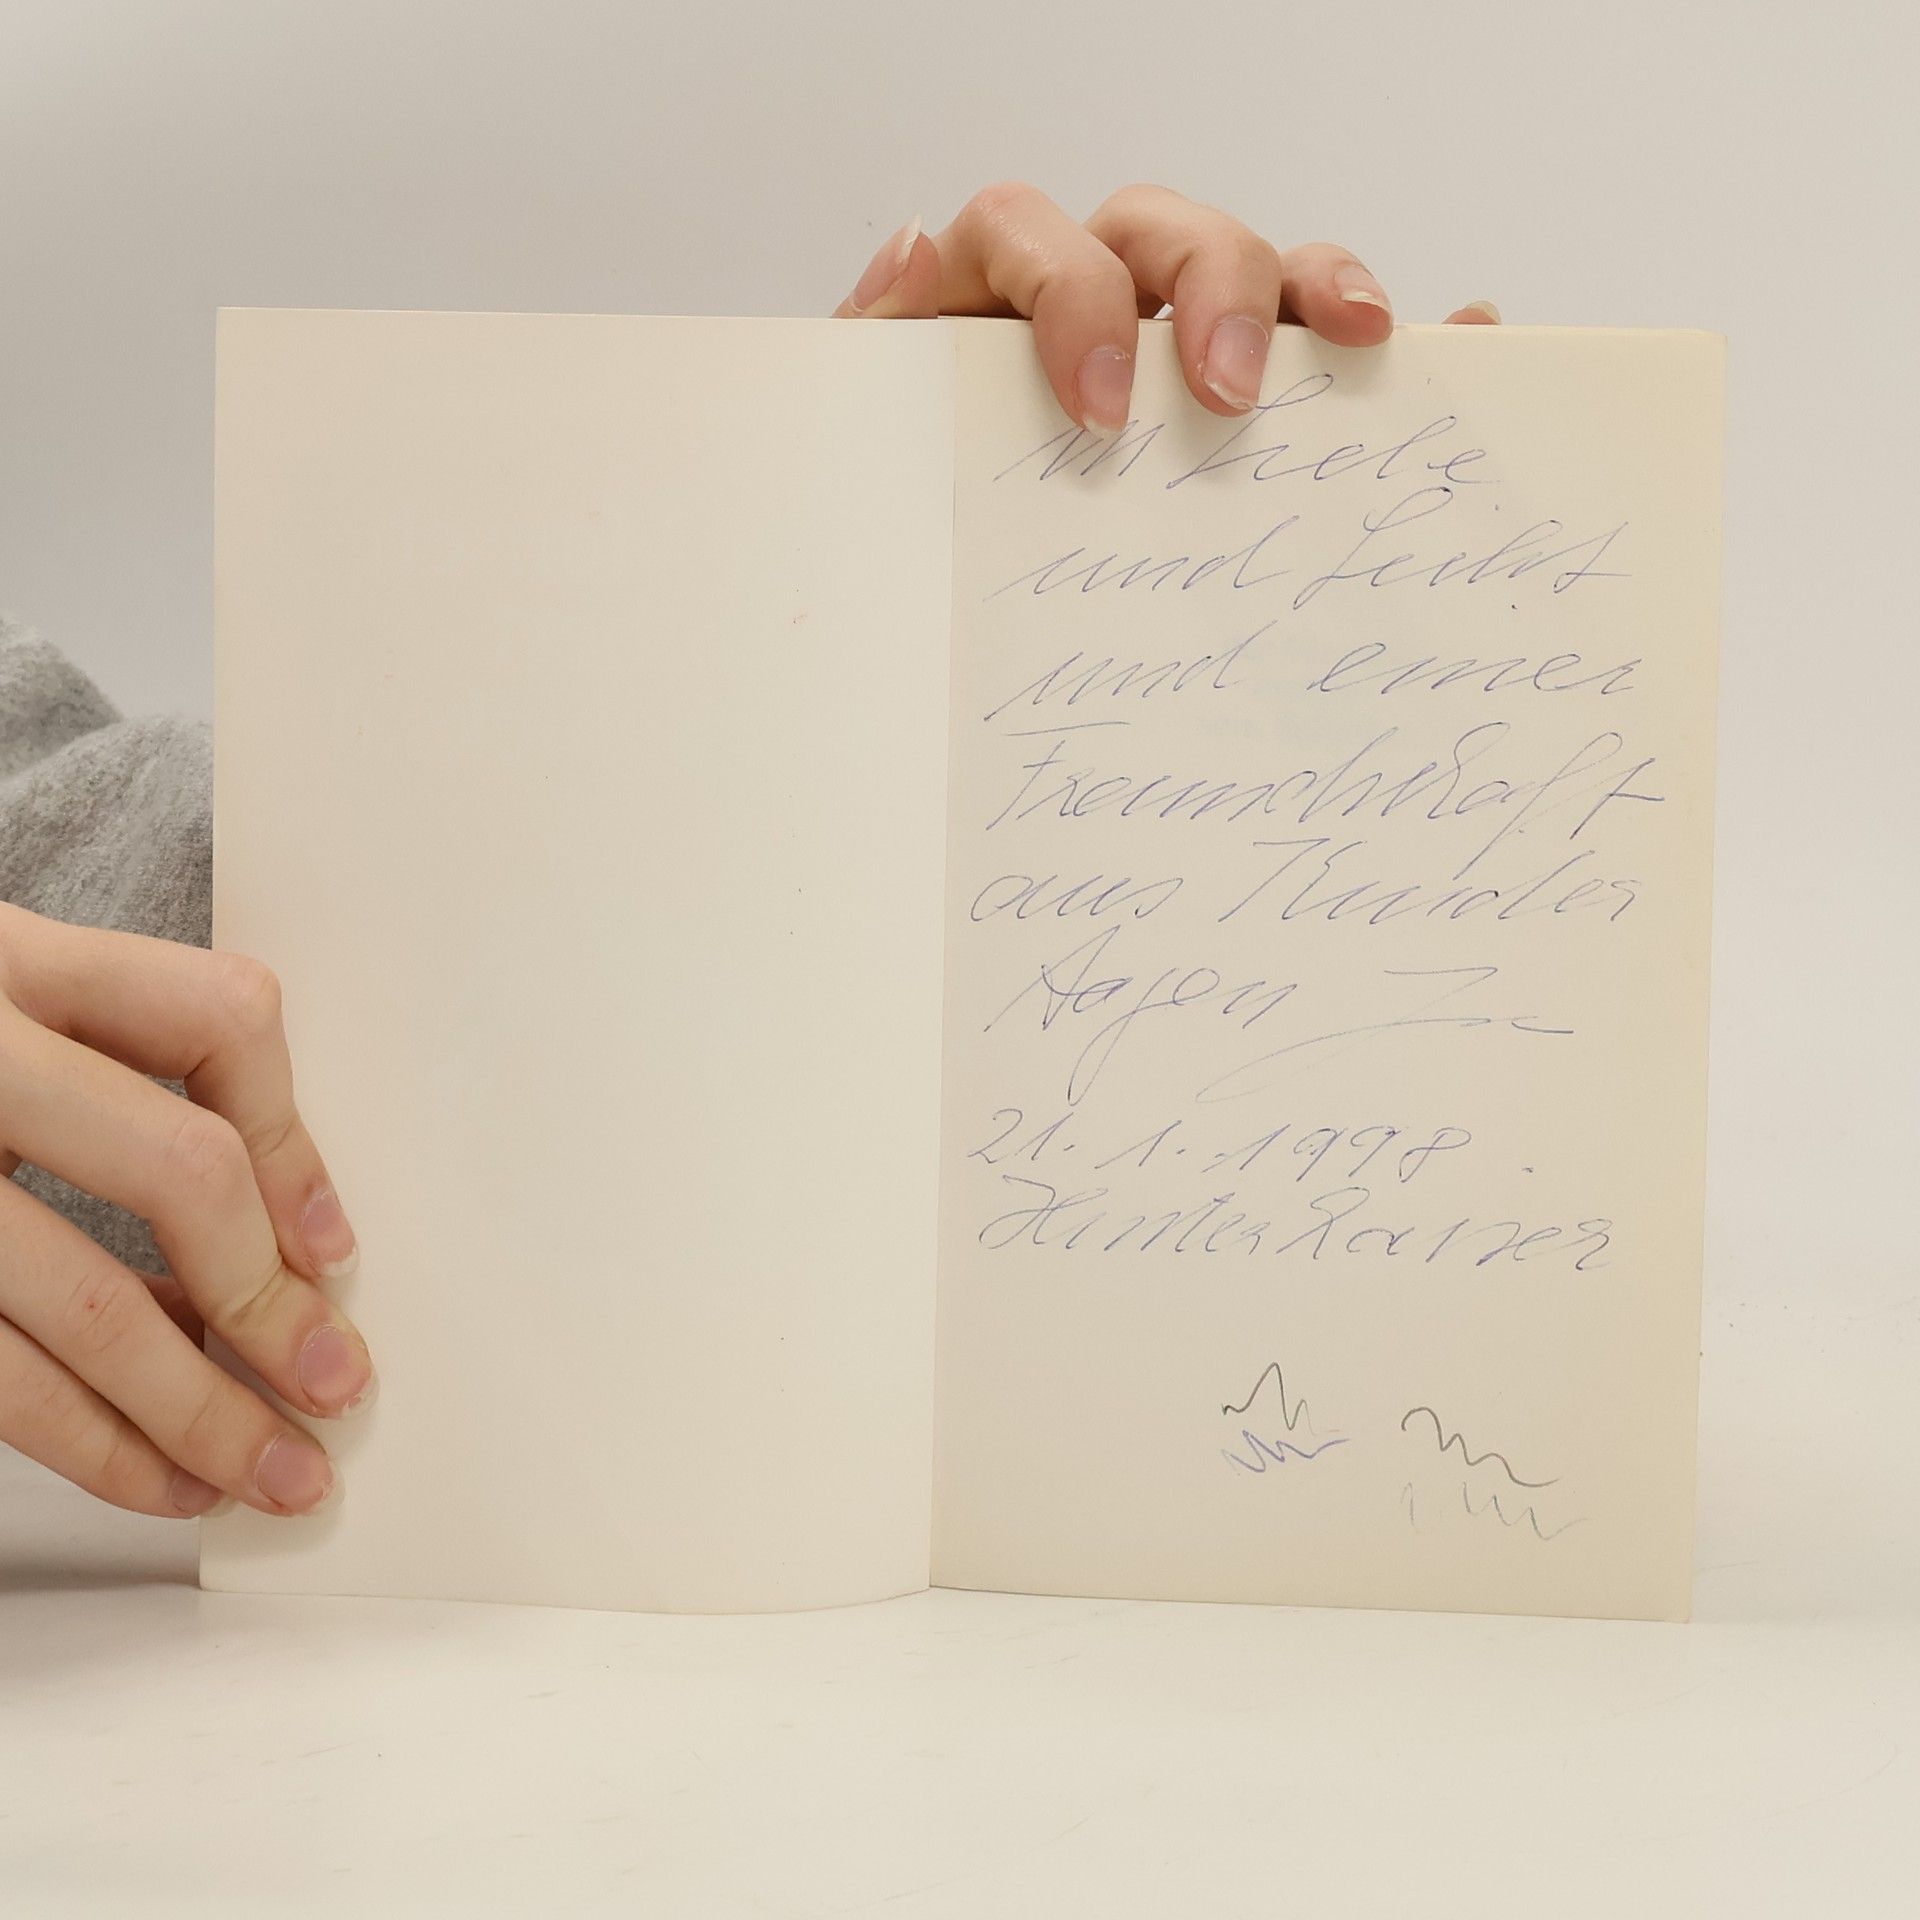 in Liebe
und Licht
und einer
Freundschaft
aus Kinder
Augen
21.1.1998
Hinterkaiser